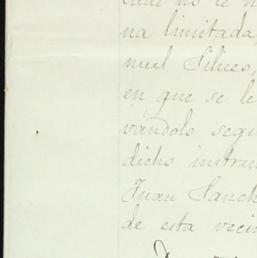 cual no le h
na limitada,
nuel Félices,
en que se le
vándolo segú
dicho instru
Juan Sanch
de esta veci